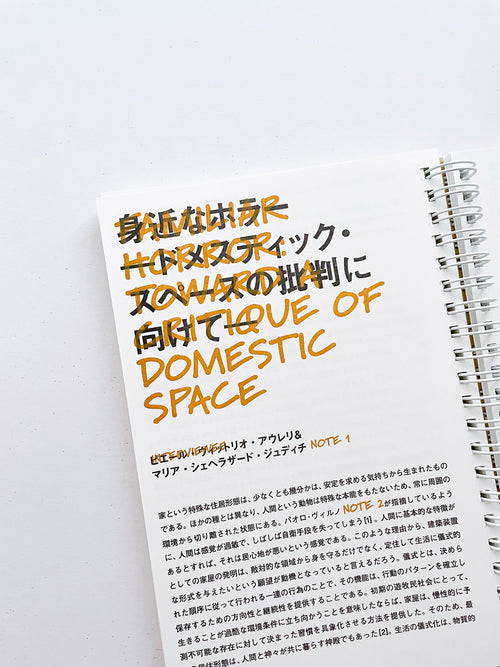 身近なホラー
FAMILIAR
HORROR:
―ドメスティック・
TOWARD A
スペースの批判に
CRITIQUE OF
向けて―
DOMESTIC
SPACE
INTERVIEWER
ピエール・ヴィットリオ・アウレリ&
マリア・シェヘラザード・ジュディチ NOTE 1
家という特殊な住居形態は、少なくとも幾分かは、安定を求める気持ちから生まれたもの
である。ほかの種とは異なり、人間という動物は特殊な本能をもたないため、常に周囲の
環境から切り離された状態にある。パオロ・ヴィルノ NOTE 2 が指摘しているよう
に、人間は感覚が過敏で、しばしば自衛手段を失ってしまう[1]。人間に基本的な特徴が
あるとすれば、それは居心地が悪いという感覚である。このような理由から、建築装置
としての家屋の発明は、敵対的な領域から身を守るだけでなく、定住して生活に儀式的
な形式を与えたいという願望が動機となっていると言えるだろう。儀式とは、決めら
れた順序に従って行われる一連の行為のことで、その機能は、行動のパターンを確立し
保存するための方向性と継続性を提供することである。初期の遊牧民社会にとって、
生きることが過酷な環境条件に立ち向かうことを意味したならば、家屋は、慢性的に予
測不可能な存在に対して決まった習慣を具象化させる方法を提供した。そのため、最
居住形態は、人間と神々が共に暮らす神殿でもあった[2]。生活の儀式化は、物質的